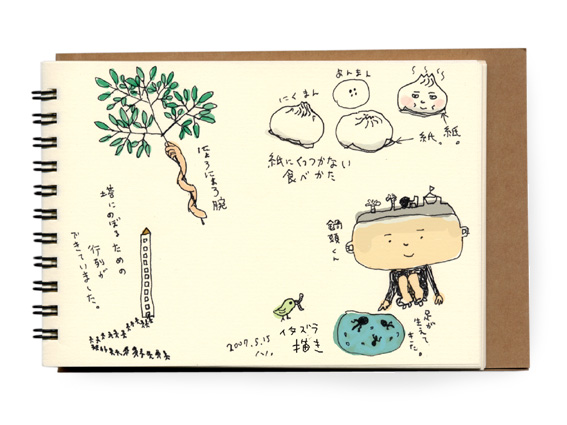 にくまん
あんまん
紙。
紙。
紙にくっつかない
食べかた
にょろにょろ腕
塔にのぼる ための
行列が
できていました。
鍋頭くん
足が
生えて
きた。
イタズラ
描き
2007.5.15